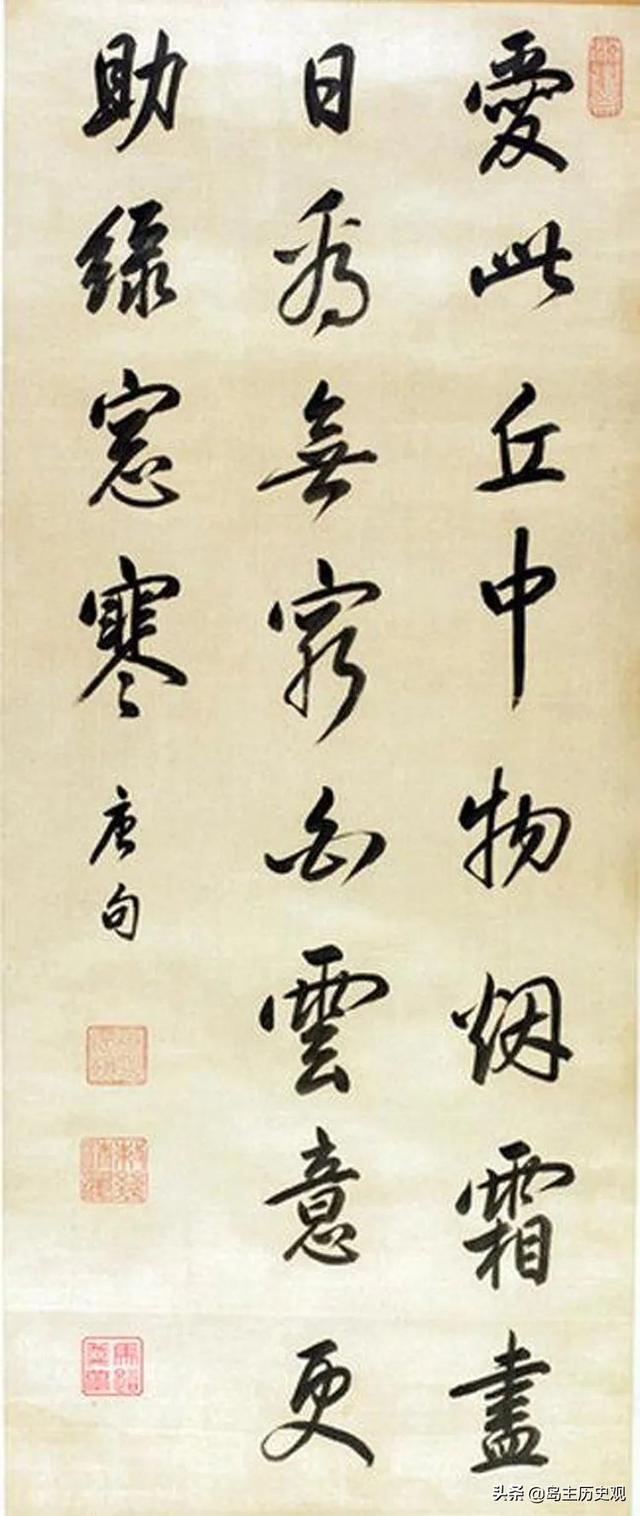 愛此丘中物烟霜盡
日看無窮白雲意更
助緑窓寒
唐句
头条 @岛主历史观